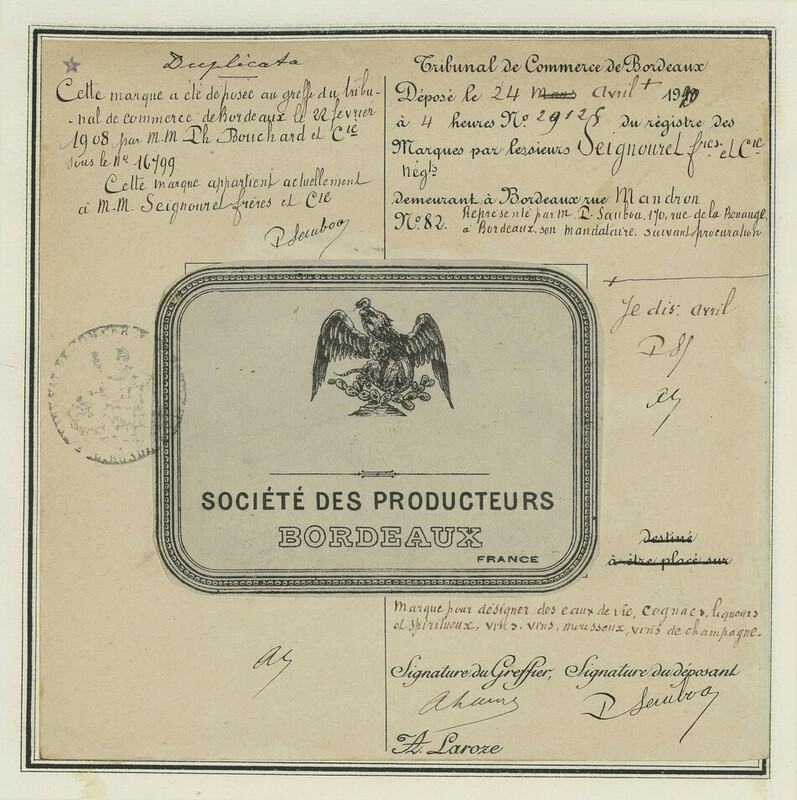 Duplicata
Cette marque a été déposée au greffe du tribu-
nal de commerce de Bordeaux le 22 février
1908 par M.M. Ph. Bouchard et Cie
sous le No 16799
Cette marque appartient actuellement
à M.M. Seignouret frères et Cie
P. Saubou
Tribunal de Commerce de Bordeaux
Déposé le 24 mars avril + 19
à 4 heures No 29128 du régistre des
Marques par les sieurs Seignouret fres. et Cie
Négts
demeurant à Bordeaux rue Mandron
No. 82. Représenté par M. P. Saubou, 170, rue de la Benauge,
à Bordeaux, son mandataire, suivant procuration
+ Je dis: avril
PS
SOCIÉTÉ DES PRODUCTEURS
BORDEAUX
FRANCE
destiné
à être placé sur
Marque pour désigner des eaux de vie, cognacs, liqueurs
et spiritueux, vins, vins mousseux, vins de champagne.
Signature du Greffier, Signature du déposant
P. Saubou
A. Laroze